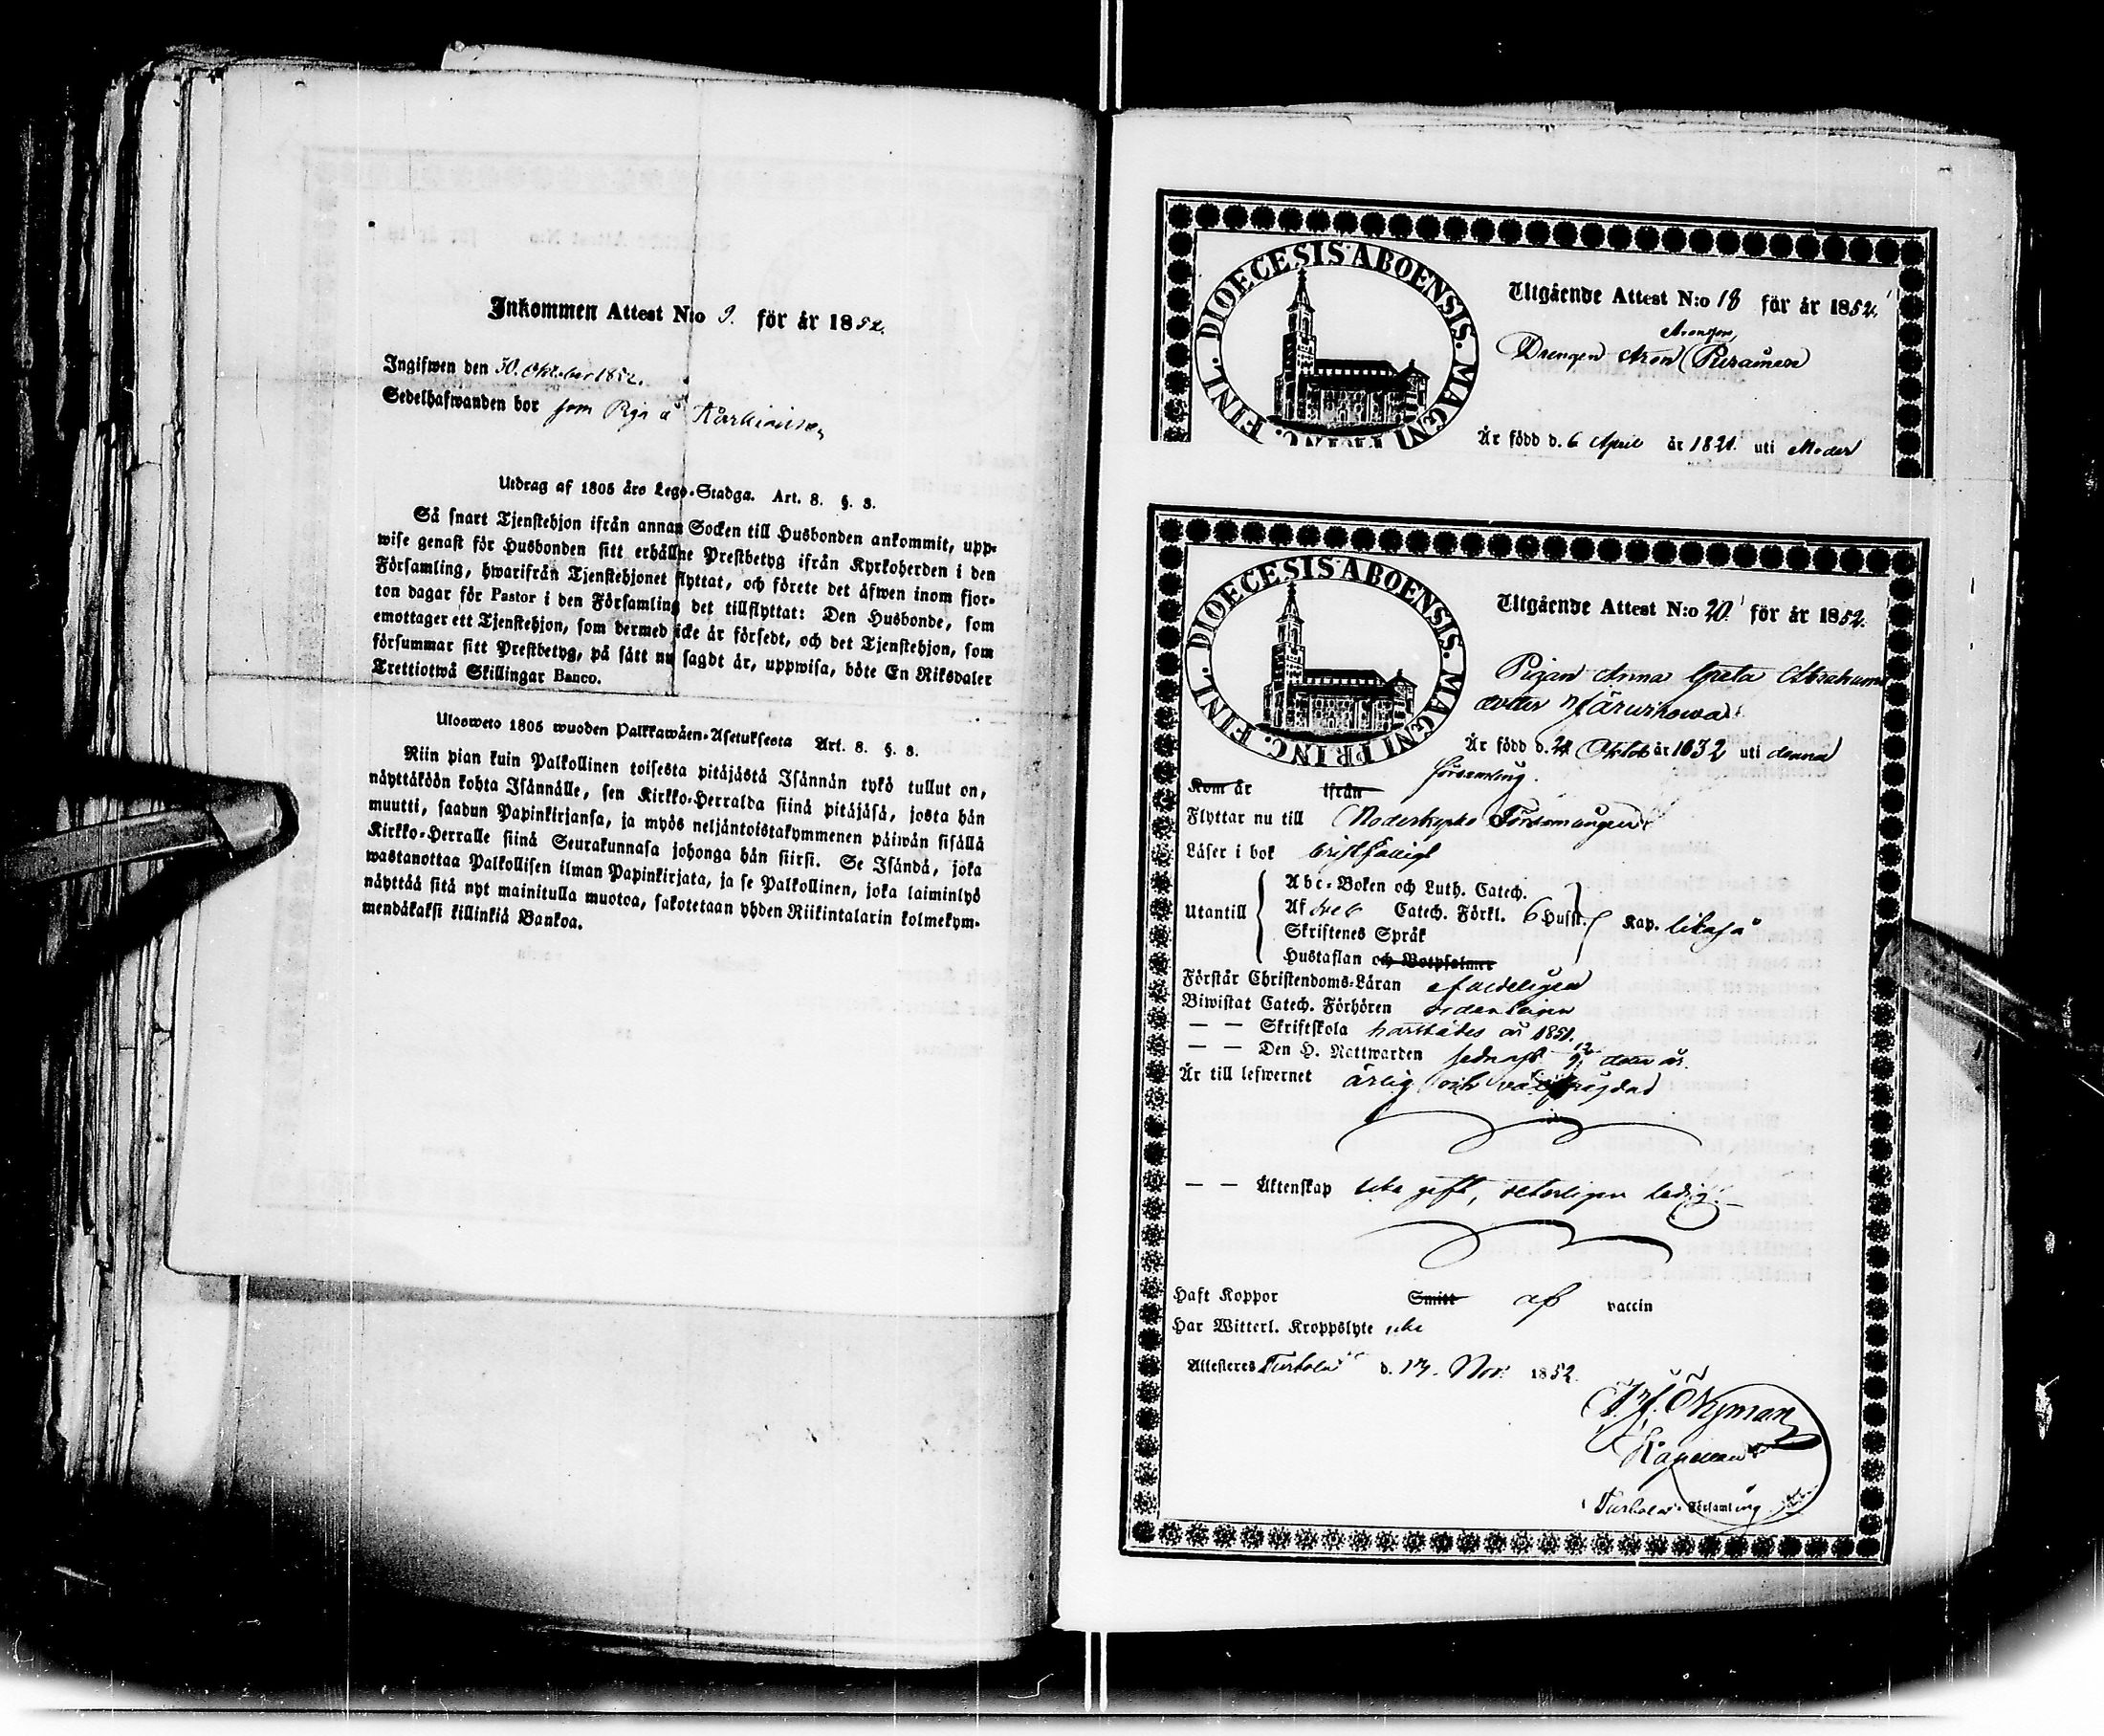 Inkommen Attest N:o 9. för år 1852.
Ingifwen den 30. Oktober 1852.
Sedelhafwanden bor som Piga å
Utdrag af 1805 års Lego-Stadga. Art. 8. §. 8.
Så snart Tjenstehjon ifrån annan Socken till Husbonden ankommit, upp-
wise genast för Husbonden sitt erhållne Prestbetyg ifrån Kyrkoherden i den
Församling, hwarifrån Tjenstehjonet flyttat, och förete det äfwen inom fjor-
ton dagar för Pastor i den Församling det tillflyttat: Den Husbonde, som
emottager ett Tjenstehjon, som dermed icke är försedt, och det Tjenstehjon, som
försummar sitt Prestbetyg, på sätt nu sagdt är, uppwisa, böte En Riksdaler
Trettiotwå Skillingar Banco.
Ulosweto 1805 wuoden Palkkawäen-Asetuksesta Art. 8. §. 8.
Niin pian kuin Palkollinen toisesta pitäjästä Isännän tykö tullut on,
näyttäköön kohta Isännälle, sen Kirkko-Herralda siinä pitäjäsä, josta hän
muutti, saadun Papinkirjansa, ja myös neljäntoistakymmenen päiwän sisällä
Kirkko-Herralle siinä Seurakunnasa johonga hän siirsi. Se Isändä, joka
wastanottaa Palkollisen ilman Papinkirjata, ja se Palkollinen, joka laiminlyö
näyttää sitä nyt mainitulla muotoa, sakotetaan yhden Riikintalarin kolmekym-
mendäkaksi killinkiä Bankoa.
DIOECESIS ABOENSIS. MAGNI PRINC. FINL.
Utgående Attest N:o 18 för år 1852.
Aronsson
Drengen Aron
Är född d. 6 April år 1821. uti Moder
DIOECESIS ABOENSIS. MAGNI PRINC. FINL.
Utgående Attest N:o 20. för år 1852.
Pigan Anna Greta Abrahams
dotter
Är född d. 24 Oktob år 1832 uti denna
församling.
Kom år ifrån
Flyttar nu till Moderkyrko Församlingen
Läser i bok
Utantill
Abc-Boken och Luth. Catech.
Af Catech. Förkl. 6 Hufst. Kap. likaså
Skriftenes Språk
Hustaflan och Botpsalmer
Förstår Christendoms-Läran
Biwistat Catech. Förhören ordentligen
— — Skriftskola år 1851.
— — Den H. Nattwarden sednast detta år.
Är till lefwernet ärlig och
— — Äktenskap icke gift, ledig.
Haft Koppor Smitt af vaccin
Har Witterl. Kroppslyte icke
Attesteres Turtola d. Nov. 1852.
Nyman
Kapellan
Turtola Församling